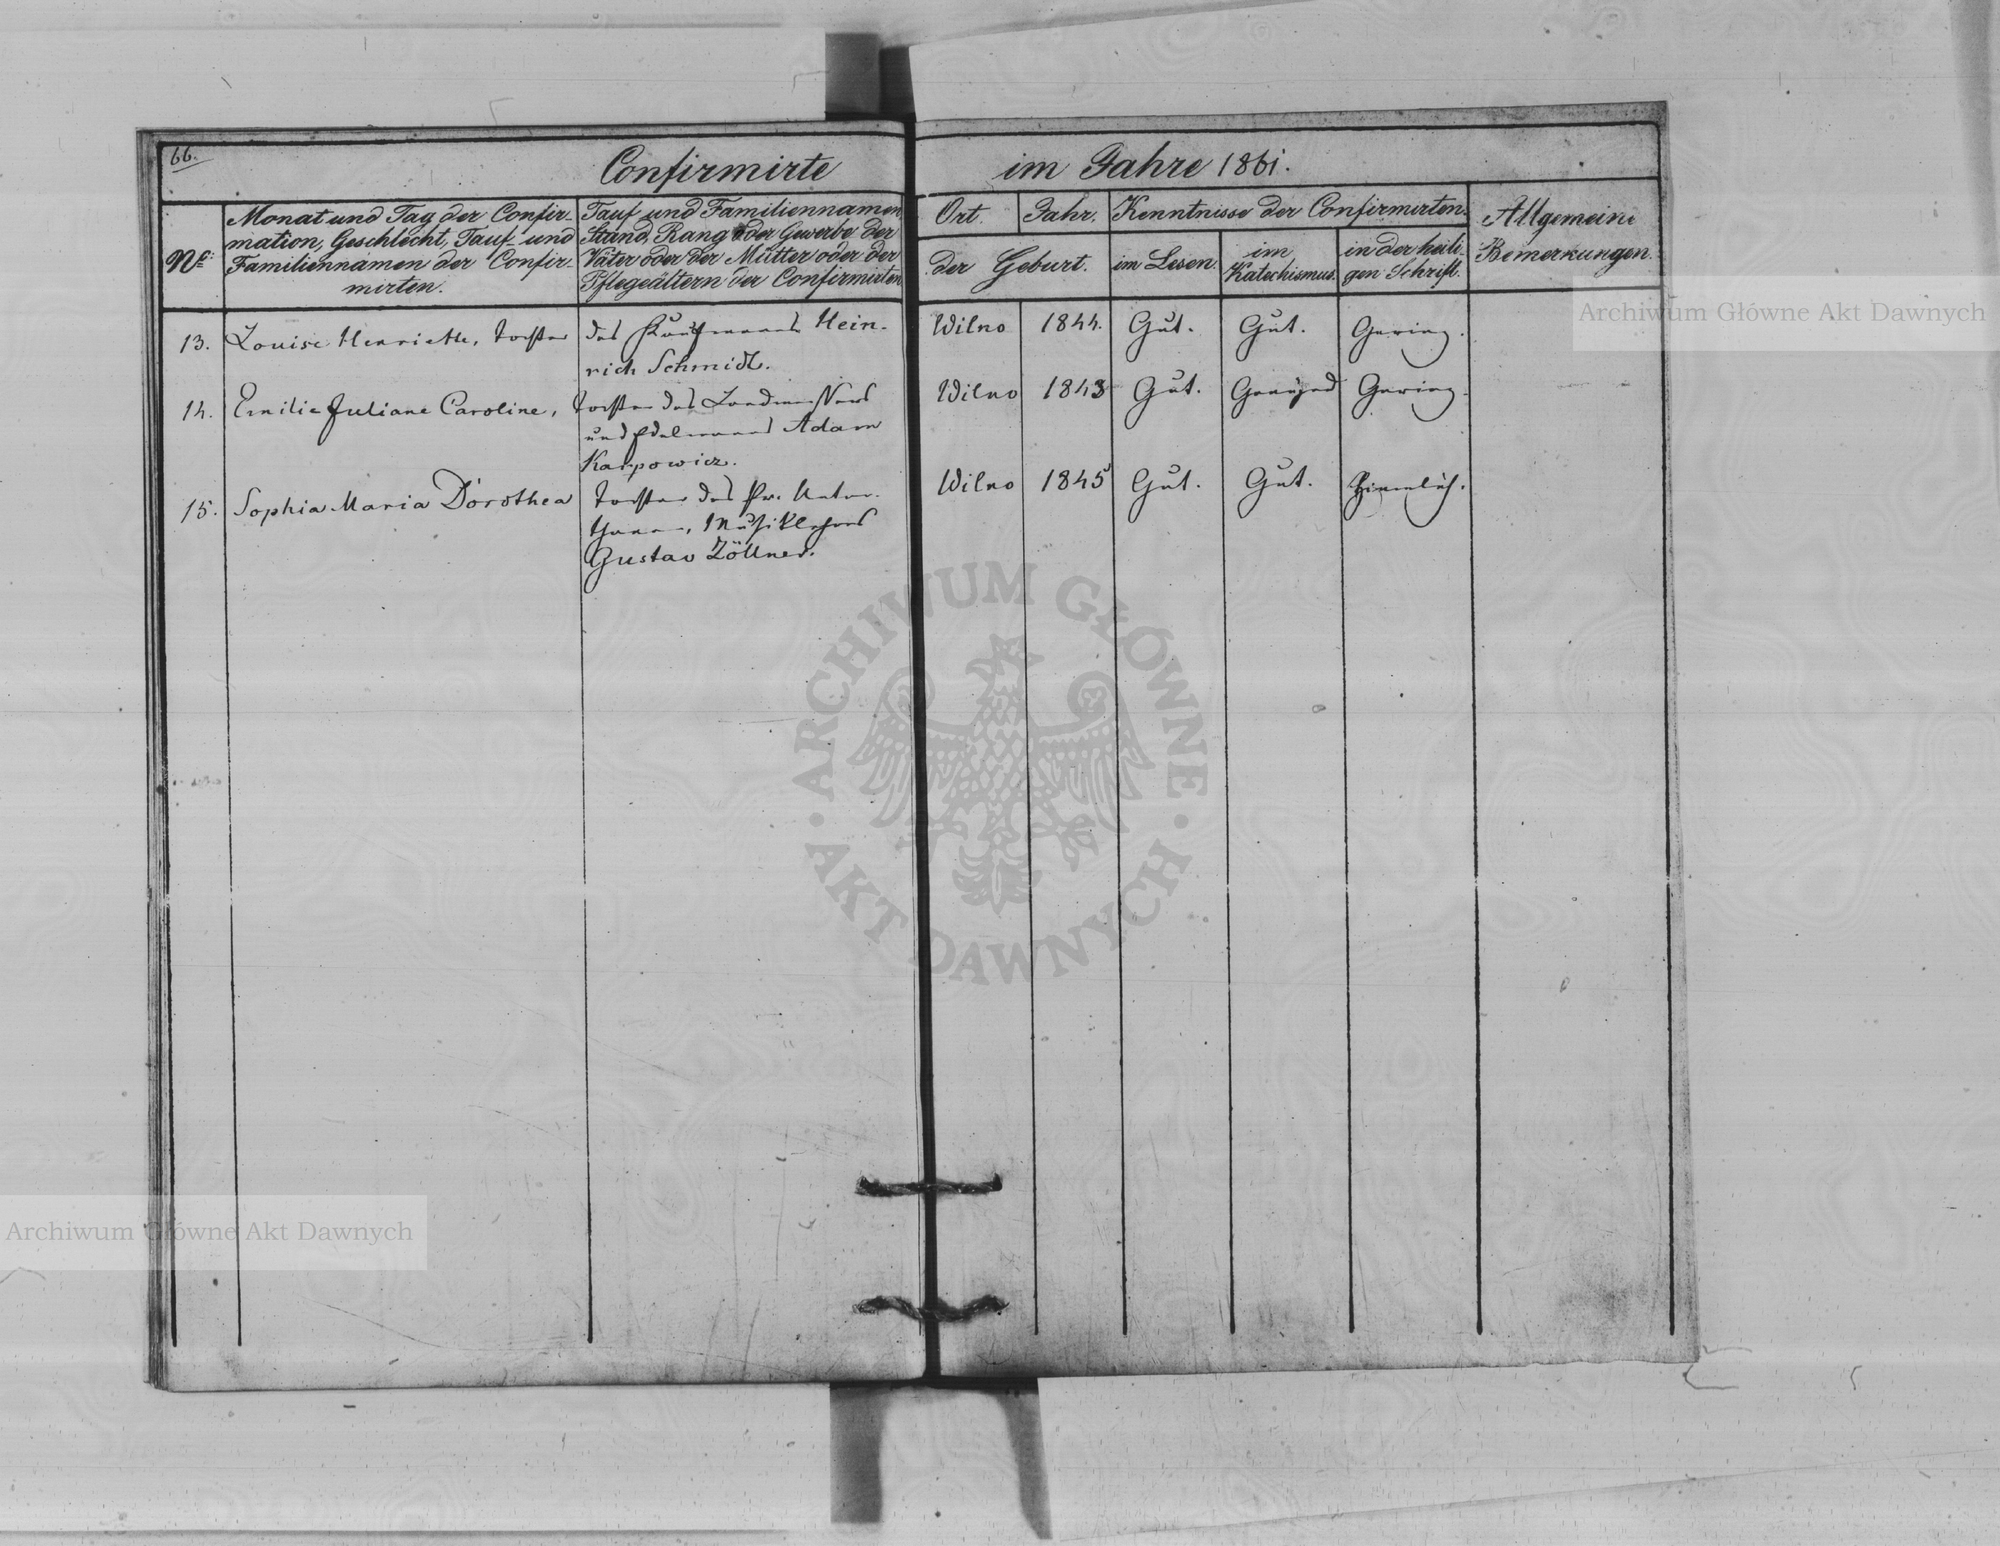 66.
Confirmirte im Jahre 1861.
Nº
Monat und Tag der Confir-
mation, Geschlecht, Tauf- und
Familiennamen der Confir-
mirten.
Tauf und Familiennamen
Stand, Rang oder Gewerbe der
Väter oder der Mütter oder der
Pflegeältern der Confirmirten
Ort.
Jahr.
der Geburt.
Kenntnisse der Confirmirten.
im Lesen.
im
Katechismus.
in der heili-
gen Schrift.
Allgemeine
Bemerkungen.
13. Louise Henriette, Tochter
des Kaufmanns Hein-
rich Schmidt.
Wilno 1844. Gut. Gut. Gering.
14. Emilie Juliane Caroline,
Tochter des Landmessers
und Edelmanns Adam
Karpowicz.
Wilno 1843 Gut. Genügend Gering.
15. Sophia Maria Dorothea
Tochter des Pr. Unter-
thanen, Musiklehrers
Gustav Zöllner.
Wilno 1845 Gut. Gut. Ziemlich.
Archiwum Główne Akt Dawnych
ARCHIWUM GŁÓWNE
AKT DAWNYCH
Archiwum Główne Akt Dawnych